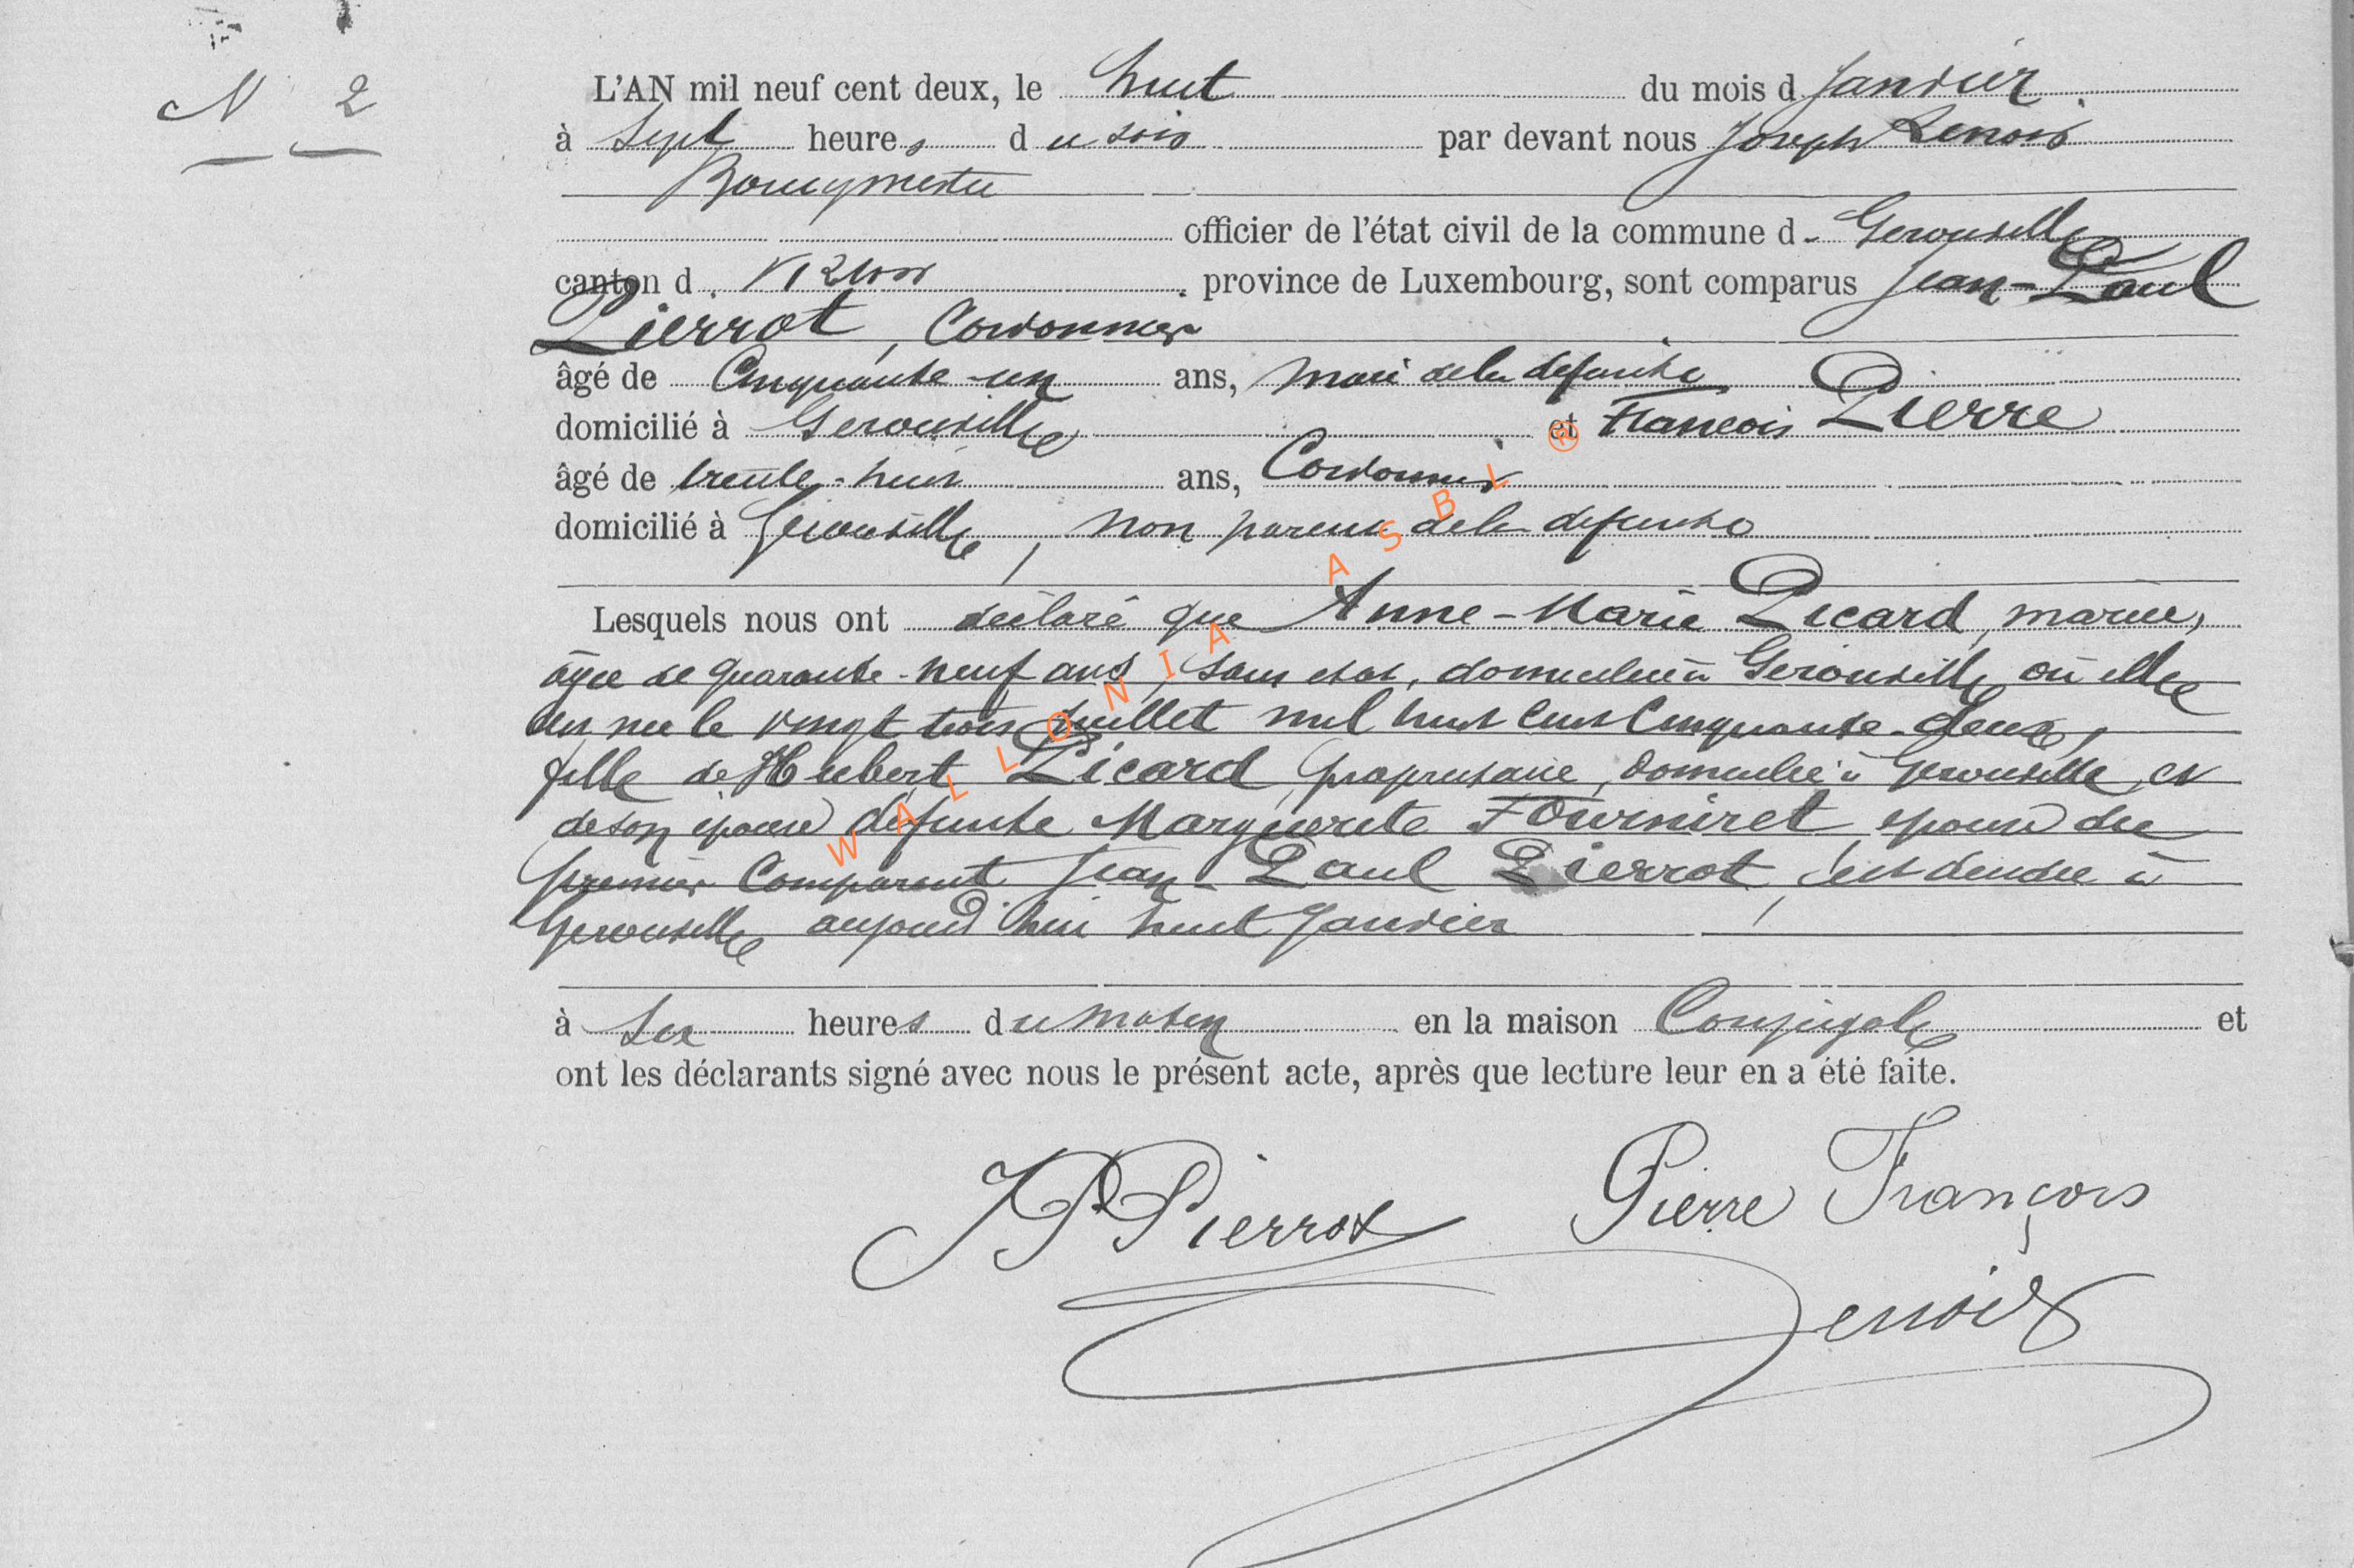 N 2
L'AN mil neuf cent deux, le huit du mois d Janvier
à Sept heures du soir par devant nous Joseph Lenoir
Bourgmestre
officier de l'état civil de la commune d Gerouville
canton d Virton province de Luxembourg, sont comparus Jean-Paul
Pierrot, Cordonnier
âgé de Cinquante-un ans, mari de la defunte
domicilié à Gerouville et François Pierre
âgé de trente-huit ans, Cordonnier
domicilié à Gerouville, non parent de la defunte
Lesquels nous ont déclaré que Anne-Marie Picard, mariée,
âgée de quarante-neuf ans, sans état, domiciliée à Gerouville où elle
est née le vingt trois Juillet mil huit cent Cinquante-deux,
fille de Hubert Picard, propriétaire, domicilié à Gerouville, et
de son épouse défunte Marguerite Fourniret, épouse du
premier Comparant Jean-Paul Pierrot, est décédée à
Gerouville aujourd'hui huit Janvier
à Six heures du matin en la maison Conjugale et
ont les déclarants signé avec nous le présent acte, après que lecture leur en a été faite.
JP Pierrot Pierre François
Lenoir
WALLONIA ASBL ®